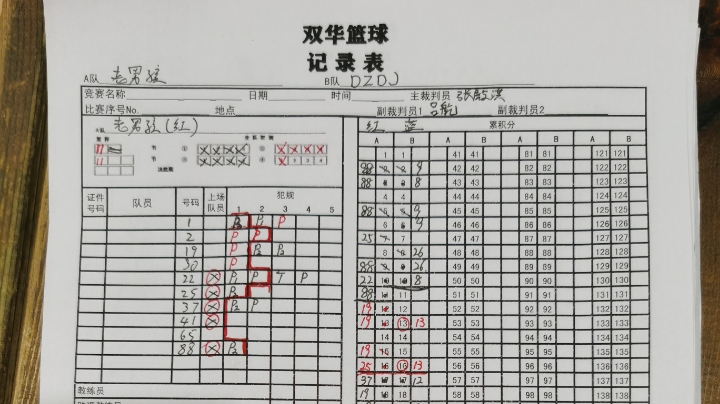 双华篮球
记录表
A队 老男孩 B队 DZDJ
竞赛名称 日期 时间 主裁判员
比赛序号No. 地点 副裁判员1 副裁判员2
老男孩(红)
红 蓝 累积分
A B A B A B A B
证件号码 队员 号码 上场队员 犯规
1 2 3 4 5
1 P2 P2 P
2 P P
19 P P2 P2
30 P
22 P1 P T P
25 P2
37 P2 P
41
65
88 P2
1 1 41 41 81 81 121 121
88 2 2 4 42 42 82 82 122 122
88 3 3 8 43 43 83 83 123 123
4 4 44 44 84 84 124 124
88 5 5 9 45 45 85 85 125 125
6 6 9 46 46 86 86 126 126
25 7 7 47 47 87 87 127 127
8 8 26 48 48 88 88 128 128
88 9 9 26 49 49 89 89 129 129
22 10 10 8 50 50 90 90 130 130
88 11 11 51 51 91 91 131 131
19 12 12 52 52 92 92 132 132
19 13 13 13 53 53 93 93 133 133
14 14 54 54 94 94 134 134
19 15 15 55 55 95 95 135 135
25 16 16 13 56 56 96 96 136 136
37 17 17 12 57 57 97 97 137 137
19 18 18 58 58 98 98 138 138
教练员